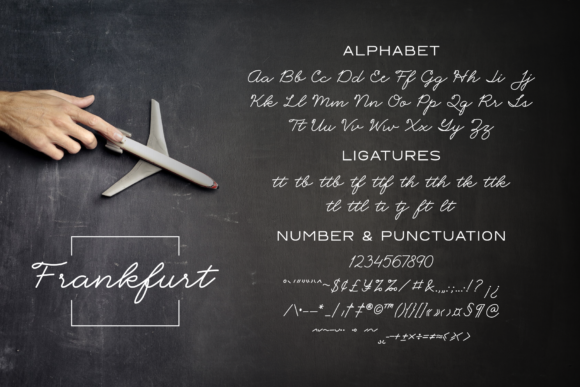 ALPHABET
Aa Bb Cc Dd Ee Ff Gg Hh Ii Jj
Kk Ll Mm Nn Oo Pp Qq Rr Ss
Tt Uu Vv Ww Xx Yy Zz
LIGATURES
tt tb ttb tf ttf th tth tk ttk
tl ttl ti tj ft lt
NUMBER & PUNCTUATION
1234567890
~$¢£¥%‰/#&.,„:;…:!?¡¿
/\•–—*_|¦†‡®©™(){}[]«»‹›¤§¶@
−+±×÷=≠≈≤≥<>
Frankfurt